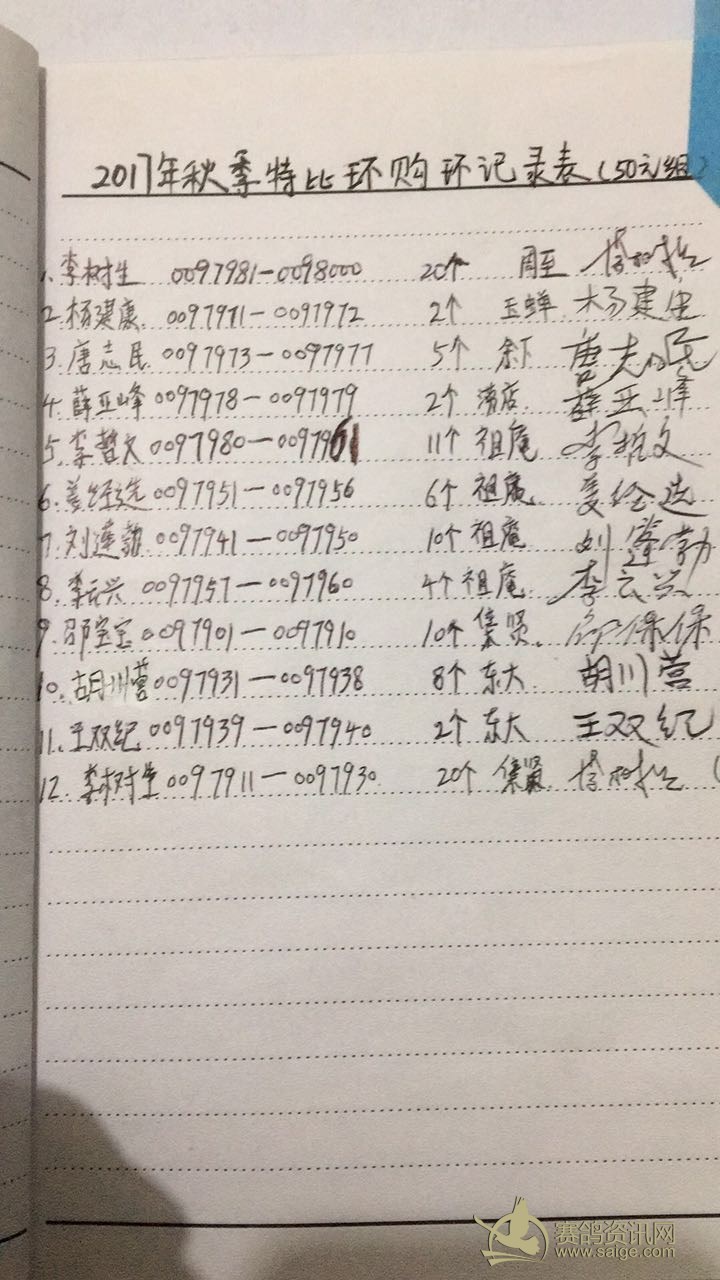 2017年秋季特比环购环记录表(50元组)
1. 李树生 0097981—0098000 20个 周至
2. 杨建康 0097971—0097972 2个 玉蝉 杨建康
3. 唐志民 0097973—0097977 5个 余下 唐志民
4. 薛亚峰 0097978—0097979 2个 薛亚峰
5. 李哲文 0097980—0097961 11个 祖庵 李哲文
6. 姜经选 0097951—0097956 6个 祖庵 姜经选
7. 刘蓬勃 0097941—0097950 10个 祖庵 刘蓬勃
8. 李云兴 0097957—0097960 4个 祖庵 李云兴
9. 邵宝宝 0097901—0097910 10个 集贤 邵保保
10. 胡川营 0097931—0097938 8个 东大 胡川营
11. 王双纪 0097939—0097940 2个 东大 王双纪
12. 李树生 0097911—0097930 20个 集贤
赛鸽资讯网
www.saige.com